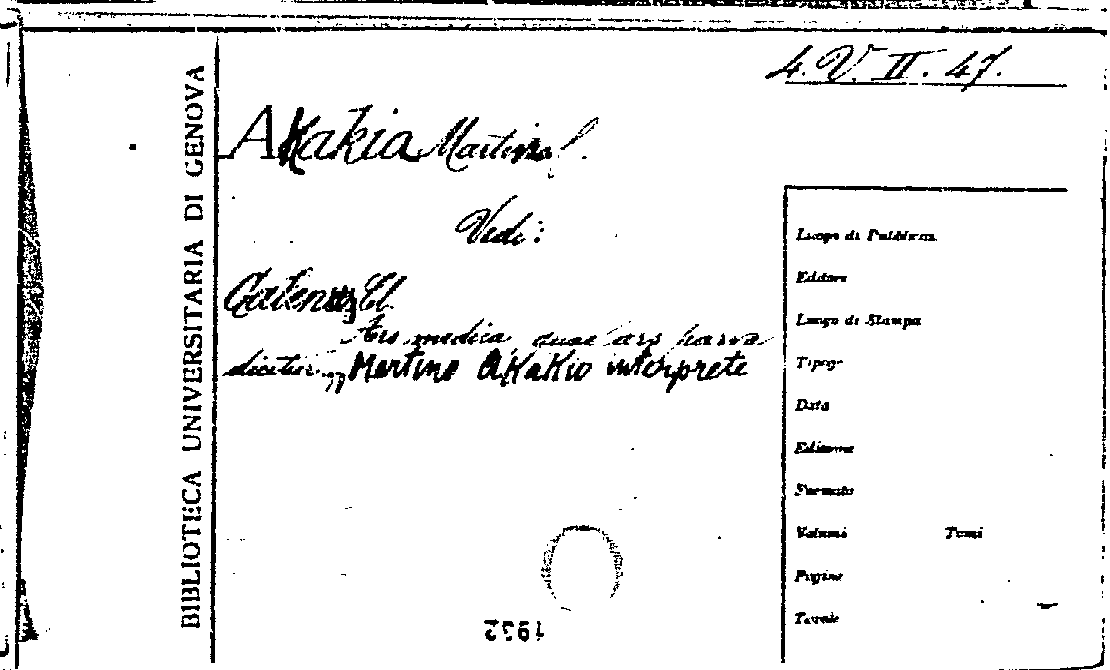 4. V. II. 47.
BIBLIOTECA UNIVERSITARIA DI GENOVA
AKakia Martinus.
Vedi:
Galenus Cl.
Ars medica quae ars parva
dicitur. Martino AKaKio interprete
Luogo di Pubblicaz.
Editore
Luogo di Stampa
Tipogr
Data
Edizione
Formato
Volumi Tomi
Pagine
Tavole
1932